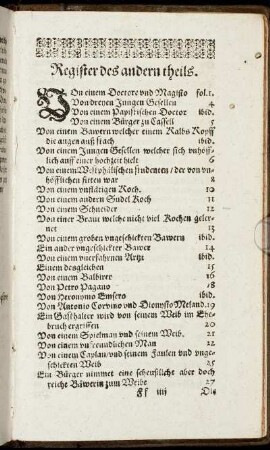 Register des andern theils.
VOn einem Doctore vnd Magistro fol.1.
Von dreyen Jungen Gesellen 4
Von einem Papistischen Doctor ibid.
Von einem Bürger zu Cassell 5
Von einem Bawern welcher einem Kalbs Kopff
die augen auß stach ibid.
Von einem Jungen Gesellen welcher sich vnhöff-
lich auff einer hochzeit hielt 6
Von einem Westphälischen studenten / der von vn-
höfflichen sitten war 8
Von einem vnflätigen Koch. 10
Von einem andern Sudel Koch 11
Von einem Schneider 12
Von einer Braut welche nicht viel Kochen geler-
net 13
Von einem groben vngeschickten Bawern ibid.
Ein ander vngeschickter Bawer 14
Von einem vnerfahrnen Artzt ibid.
Einem desgleichen 15
Von einem Balbirer 16
Von Petro Pagano 18
Von Hieronymo Emsero ibid.
Von Antonio Corvino vnd Dionysio Meland. 19
Ein Gasthalter wird von seinem Weib im Ehe-
bruch ergriffen 20
Von einem Spielman vnd seinem Weib. 21
Von einem vnfreundlichen Man 22
Von einem Caplan / vnd seinem Faulen vnd vnge-
schickten Weib 25
Ein Bürger nimmet eine scheußliche aber doch
reiche Bäwerin zum Weibe 27
Ff iiij Die